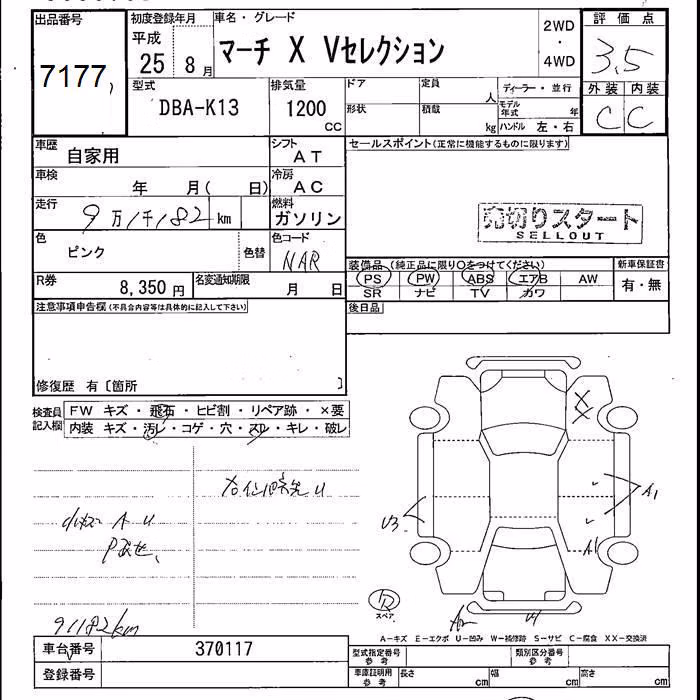 出品番号
7177
初度登録年月
平成
25 8月
車名・グレード
マーチ X Vセレクション
2WD
・
4WD
評価点
3.5
外装 内装
C C
型式
DBA-K13
排気量
1200
CC
ドア
定員
人
形状
積載
kg
ディーラー・並行
モデル年式 年
ハンドル 左・右
車歴
自家用
シフト
AT
セールスポイント(正常に機能するものに限ります)
車検
年 月( 日)
冷房
AC
走行
9万1千182km
燃料
ガソリン
売切りスタート
SELLOUT
色
ピンク
色替
色コード
NAR
装備品(純正品に限り○をつけてください)
新車保証書
PS PW ABS エアB AW
SR ナビ TV カワ
有・無
R券
8,350円
名変通知期限
月 日
後日品
注意事項申告欄(不具合内容等は具体的に記入して下さい)
修復歴 有〔箇所 〕
検査員記入欄
FW キズ・飛石・ヒビ割・リペア跡・×要
内装 キズ・汚レ・コゲ・穴・スレ・キレ・破レ
X
X
U3
A1
A1
スペア
91182km
A－キズ E－エクボ U－凹み W－補修跡 S－サビ C－腐食 XX－交換済
車台番号
370117
型式指定番号
参考
類別区分番号
参考
登録番号
車庫証明用
参考
長さ cm
幅 cm
高さ cm